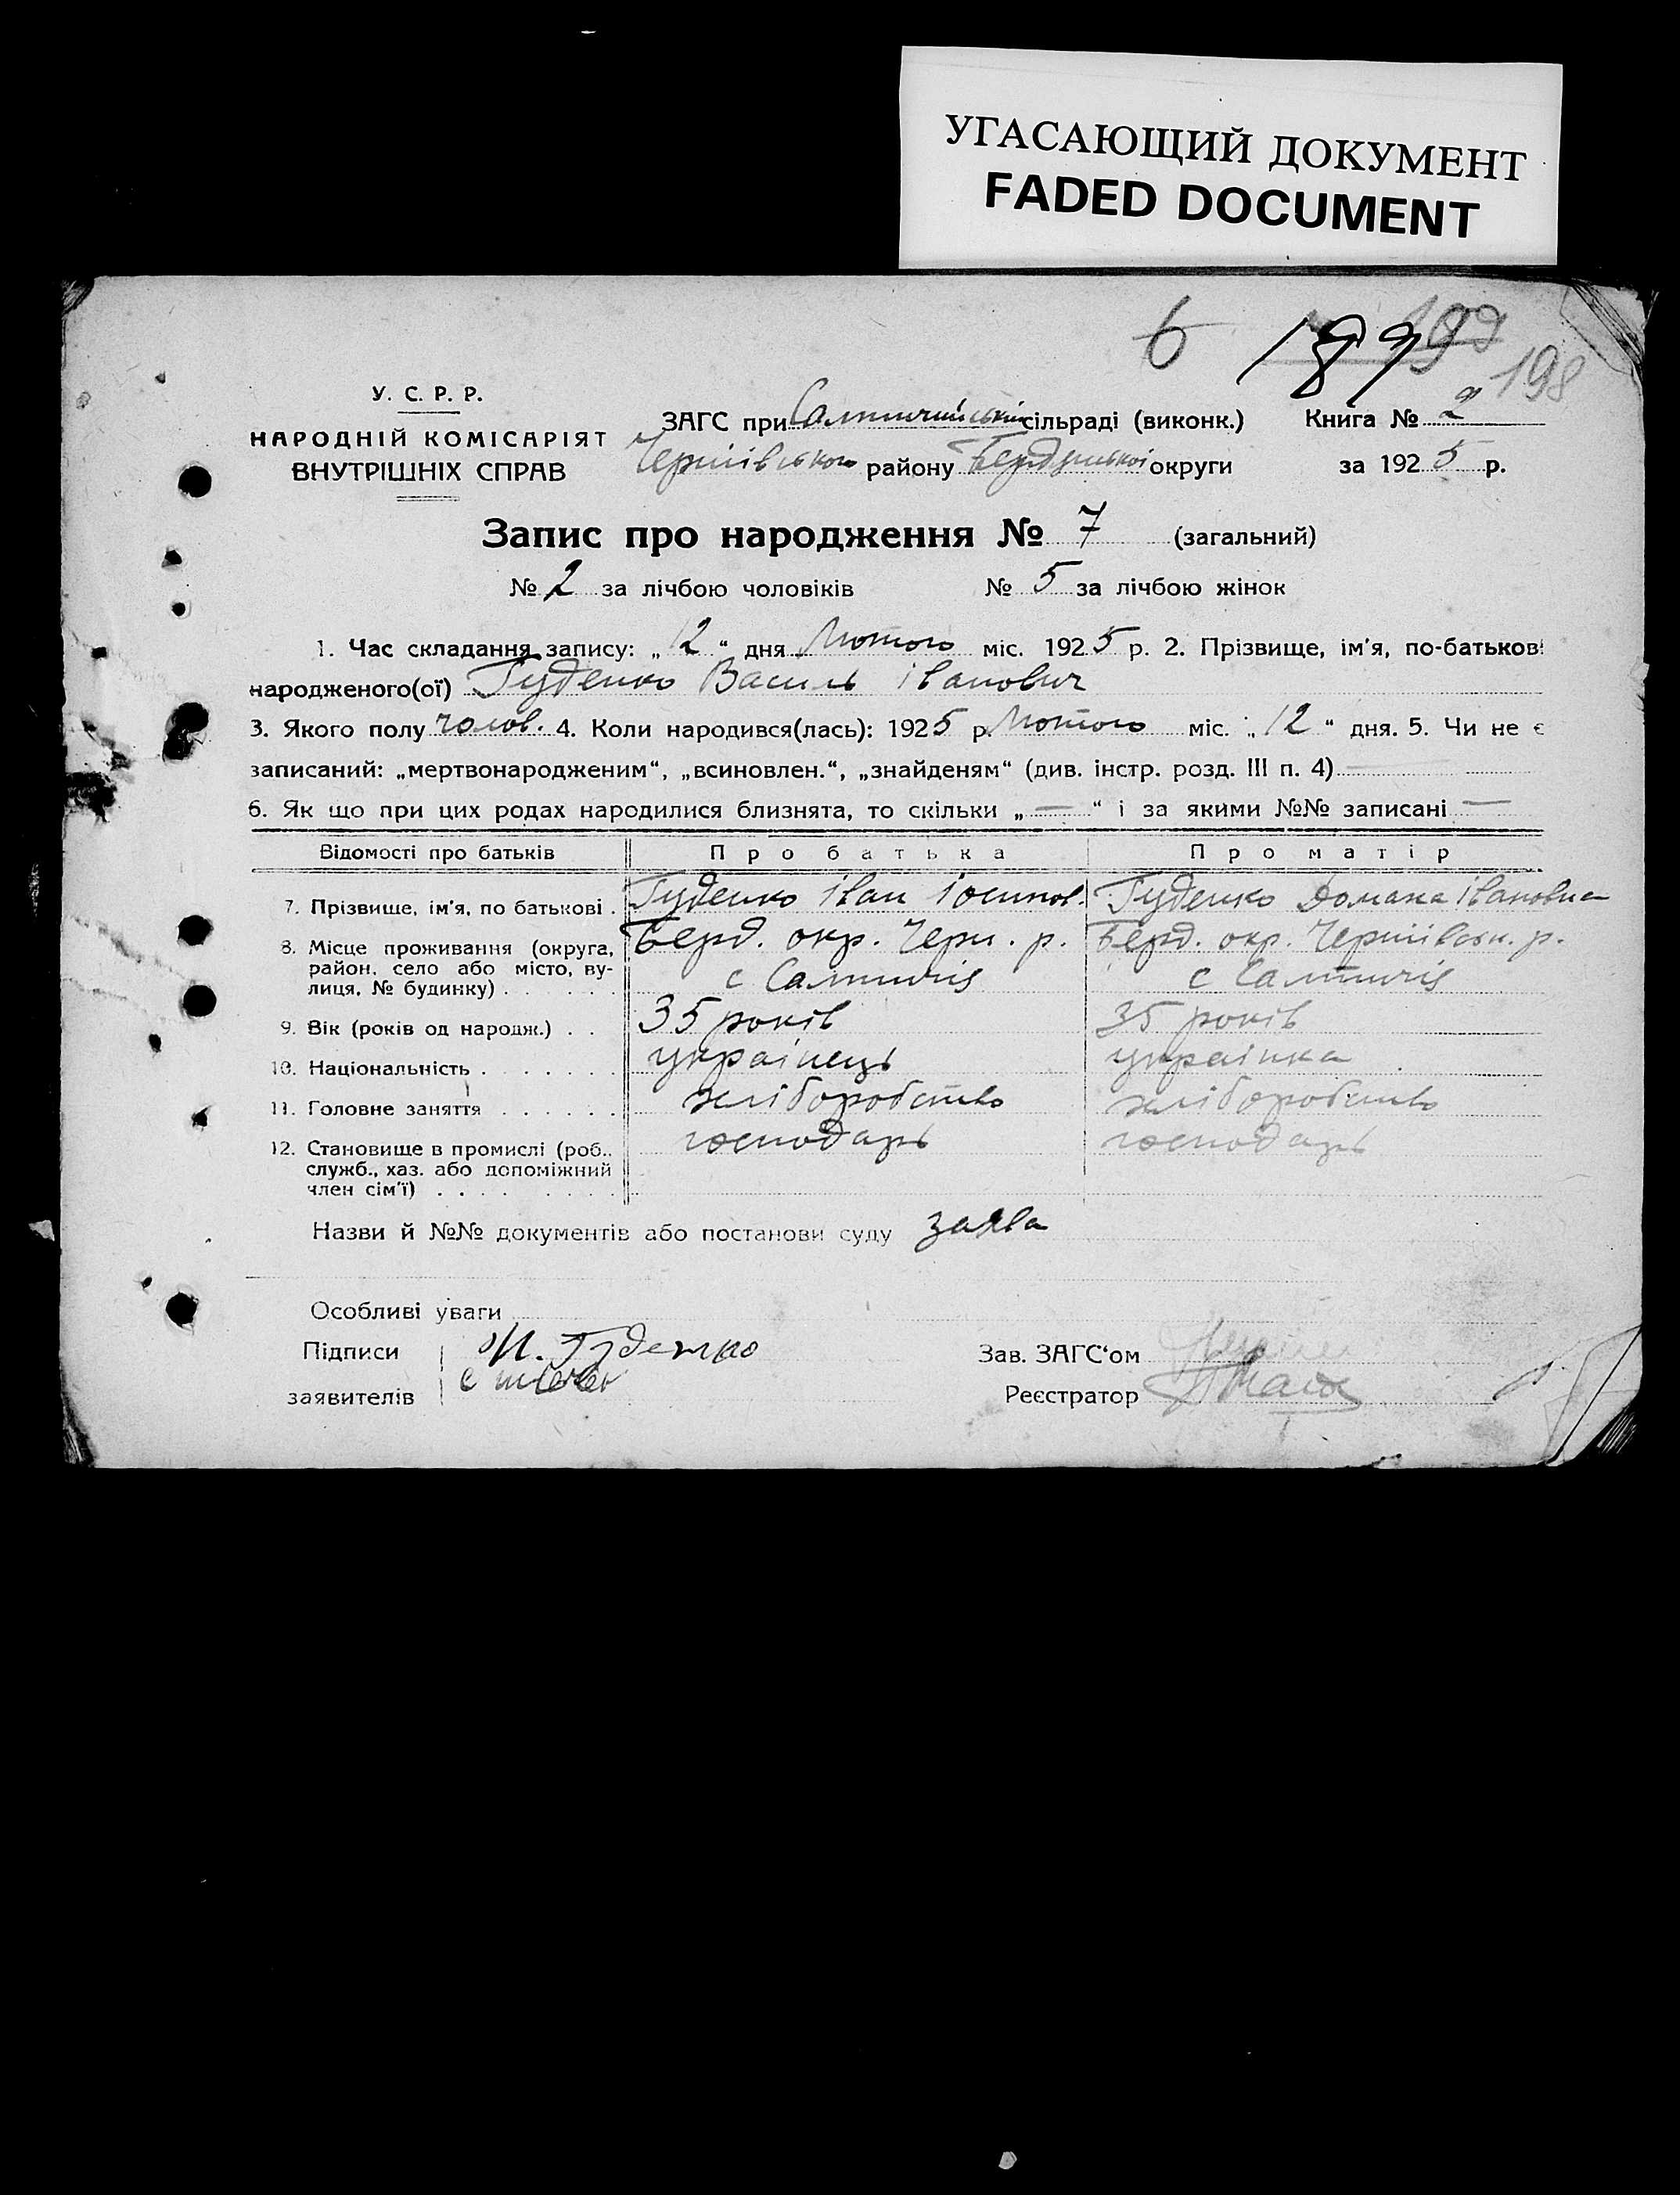 УГАСАЮЩИЙ ДОКУМЕНТ
FADED DOCUMENT
6 189 198
У. С. Р. Р.
НАРОДНІЙ КОМІСАРІЯТ
ВНУТРІШНІХ СПРАВ
ЗАГС при Салтичійській сільраді (виконк.) Книга № 2
Чернівського району Бердянської округи за 1925 р.
Запис про народження № 7 (загальний)
№ 2 за лічбою чоловіків № 5 за лічбою жінок
1. Час складання запису: „12“ дня Лютого міс. 1925 р. 2. Прізвище, ім'я, по-батькові
народженого(ої) Гуденко Василь Іванович
3. Якого полу чолов. 4. Коли народився(лась): 1925 р. Лютого міс. „12“ дня. 5. Чи не є
записаний: „мертвонародженим“, „всиновлен.“, „знайденям“ (див. інстр. розд. III п. 4) —
6. Як що при цих родах народилися близнята, то скільки „—“ і за якими №№ записані —
Відомості про батьків Про батька Про матір
7. Прізвище, ім'я, по батькові . Гуденко Іван Іосипов. Гуденко Домаха Івановна
8. Місце проживання (округа, район, село або місто, вулиця, № будинку) . . . . . Берд. окр. Черн. р. с Салтичія Берд. окр. Чернівськ. р. с Салтичія
9. Вік (років од народж.) . . 35 років 35 років
10. Національність . . . . . . . українець українка
11. Головне заняття . . . . . . хліборобство хліборобство
12. Становище в промислі (роб., служб., хаз. або допоміжний член сім'ї) . . . . . . . . господарь господарь
Назви й №№ документів або постанови суду заява
Особливі уваги
Підписи И. Гуденко
заявителів
Зав. ЗАГС'ом
Реєстратор